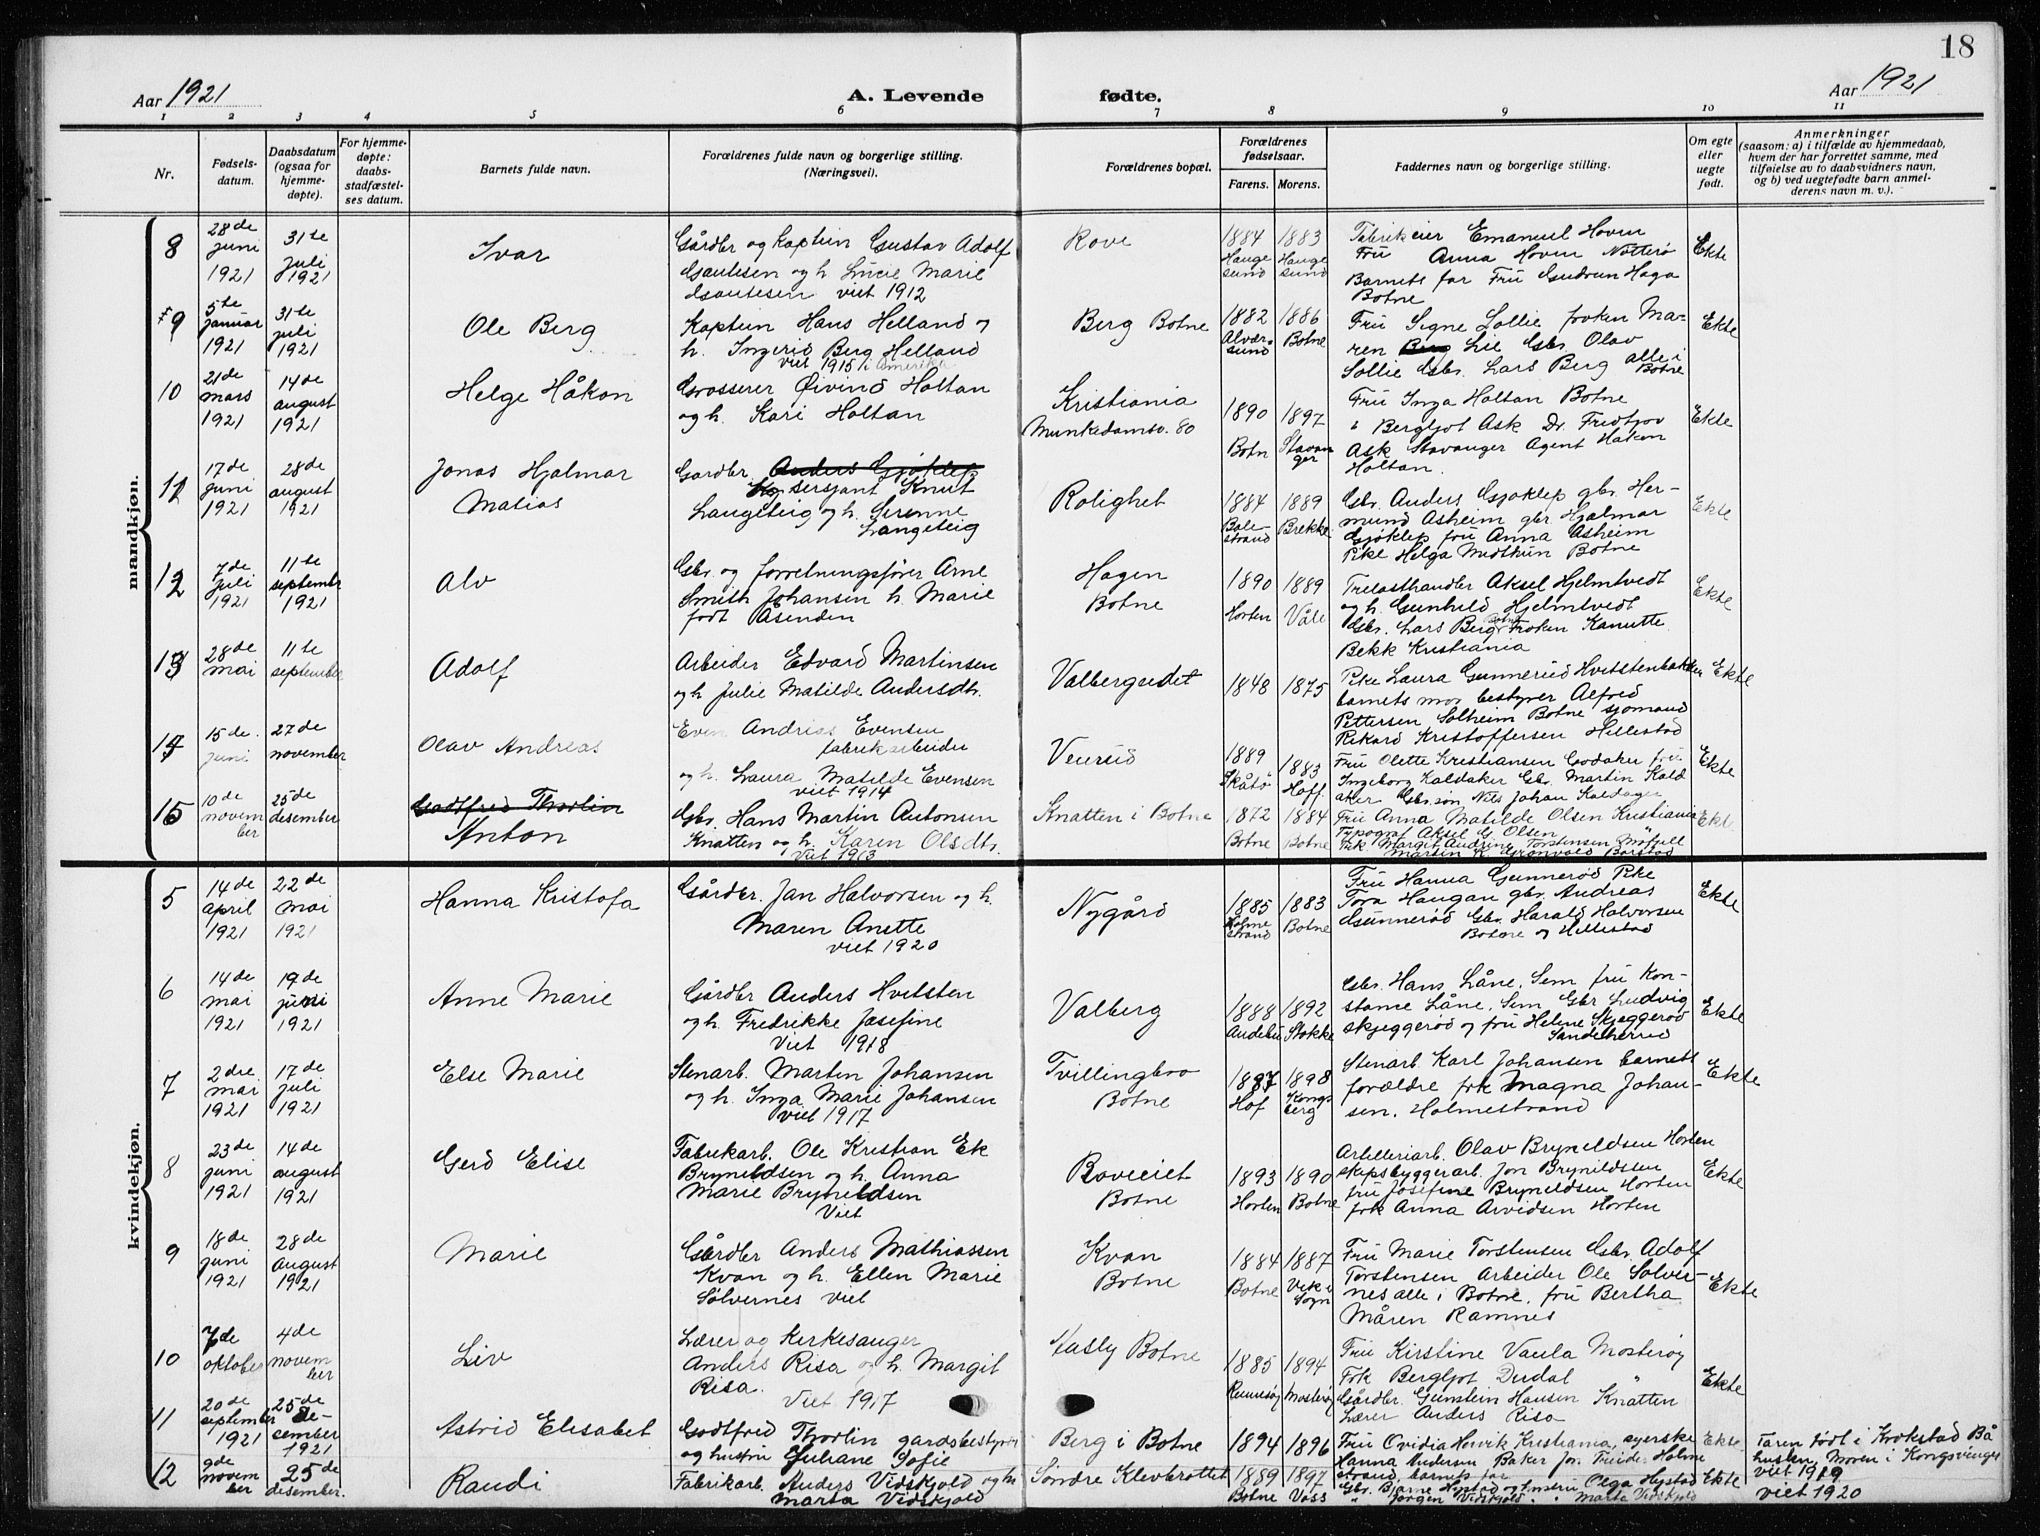 18
Aar 1921
A. Levende
fødte.
Aar 1921
1 2 3 4 5 6 7 8 9 10 11
Nr.
Fødsels-
datum.
Daabsdatum
(ogsaa for
hjemme-
døpte).
For hjemme-
døpte:
daabs-
stadfæstel-
ses datum.
Barnets fulde navn.
Forældrenes fulde navn og borgerlige stilling.
(Næringsvei).
Forældrenes bopæl.
Forældrenes
fødselsaar.
Farens. Morens.
Faddernes navn og borgerlige stilling.
Om egte
eller
uegte
født.
Anmerkninger
(saasom: a) i tilfælde av hjemmedaab,
hvem der har forrettet samme, med
tilføielse av to daabsvidners navn,
og b) ved uegtefødte barn anmel-
derens navn m. v.).
mandkjøn.
8
28de
juni
1921
31te
juli
1921
Ivar
Gårdbr og kaptein Gustav Adolf
Gautesen og h. Lucie Marie
Gautesen viet 1912
Rove
1884
Hauge
sund
1883
Hauge
sund
Fabrikeier Emanuel Hoven
Fru Anna Hoven Nøtterø
Barnets far Fru Gudrun Haga
Botne
Ekte
9
5te
januar
1921
31te
juli
1921
Ole Berg
Kaptein Hans Helland og
h. Ingerid Berg Helland
viet 1915 i Amerika
Berg Botne
1882
Alvær-
sund
1886
Botne
Fru Signe Sollie frøken Ma-
ren Lie Gbr. Olav
Sollie Gbr. Lars Berg alle i
Botne
Ekte
10
21de
mars
1921
14de
august
1921
Helge Håkon
Grosserer Øivind Holtan
og h. Kari Holtan
Kristiania
Munkedamsv. 80
1890
Botn
1897
Stavan
ger
Fru Inga Holtan Botne
" Bergljot Ask Dr. Fredtjov
Ask Stavanger Agent Håkon
Holtan.
Ekte
11
17de
juni
1921
28de
august
1921
Jonas Hjalmar
Matias
Gardbr. Anders Gjøklep
sersjant Knut
Langeteig og h. Serenne
Langeteig
Rolighet
1884
Bale-
strand
1889
Brekke
Gbr. Anders Gjøklep gbr. Her-
mund Åsheim gbr Hjalmar
Gjøklep fru Anna Åsheim
Pike Helga Midtkun Botne
Ekte
12
7de
juli
1921
11te
september
1921
Alv
Gbr. og forretningsfører Arne
Smith Johansen h. Marie
født Åsenden
Hagen
Botne
1890
Horten
1889
Våle
Trelasthandler Aksel Hjelmtvedt
og h. Gunhild Hjelmtvedt
Gbr. Lars Berg Botne Frøken Kanutte
Bekk Kristiania
Ekte
13
28de
mai
11te
september
Adolf
Arbeider Edvard Martinsen
og h. Julie Matilde Andersdtr.
Valbergvedet
1848
1875
Pike Laura Gunnerud Hvitstenbakken
barnets mor bestyrer Alfred
Pettersen Solheim Botne sjømand
Rikard Kristoffersen Hillestad
Ekte
14
15de.
juni
27de
november
Olav Andreas
Even Andreas Evensen
fabrikarbeider
og h. Laura Matilde Evensen
viet 1914
Veursid
1889
Skåtø
1883
Hoff
Fru Olette Kristiansen Grodaker fru
Ingeborg Kaldaker Gbr. Martin Kald
aker Gbr.søn Nils Johan Kaldager
Ekte
15
10de
novem
ber
25de
desember
Godtfred Thorlin
Anton
Gbr. Hans Martin Antonsen
Knatten og h. Karen Olsdtr.
Viet 1913
Knatten i Botne
1872
Botne
1884
Botne
Fru Anna Matilde Olsen Kristiania
Typograf Aksel G. Olsen
Frk Margit Andrine Torstensen Snøfjell
Martin K. Grønvold Borstad
Ekte
kvindekjøn.
5
14de
april
1921
22de
mai
1921
Hanna Kristofa
Gårdbr. Jan Halvorsen og h.
Maren Anette
viet 1920
Nygård
1885
Holme
strand
1883
Botne
Fru Hanna Gunnerød Pike
Tora Haugan gbr. Andreas
Gunnerød Gbr. Harald Halvorsen
Botne og Hillestad
Ekte
6
14de
mai
1921
19de
juni
1921
Anne Marie
Gårdbr Anders Hvitsten
og h. Fredrikke Josefine
Viet 1918
Valberg
1888
Andebu
1892
Stokke
Gbr. Hans Låne, Sem fru Kon-
stanse Låne, Sem Gbr Ludvig
Skjeggerød og fru Helene Skjeggerød
Sandeherred
Ekte
7
2dre
mai
1921
17de
juli
1921
Else Marie
Stenarb. Marten Johansen
og h. Inga Marie Johansen
viet 1917
Tvillingbro
Botne
1887
Hof
1898
Kongs
berg
Stenarb. Karl Johansen barnets
forældre frk Magna Johan-
sen. Holmestrand
Ekte
8
23de
juni
1921
14de
august
1921
Gerd Elise
Fabrikarb. Ole Kristian Ek
Bryneldsen og h. Anna
Marie Bryneldsen
Viet
Roveeiet
Botne
1893
Horten
1890
Botne
Artilleriarb. Olav Bryneldsen Horten
skipsbyggerarb. Jon Brynildsen
fru Josefine Bryneldsen Horten
frk Anna Arvidsen Horten
Ekte
9
18de
juni
1921
28de
august
1921
Marie
Gårdbr Anders Mathiassen
Kvan og h. Ellen Marie
Sølvernes viet
Kvan
Botne
1884
Botne
1887
Vik i
Sogn
Fru Marie Torstensen Gbr. Adolf
Torstensen Arbeider Ole Sølver-
nes alle i Botne, fru Bertha
Måren Ramnes
Ekte
10
7de
oktober
4de
novem
ber
Liv
Lærer og kirkesanger
Anders Risa og h. Margit
Risa.
Viet 1917
Aasly Botne
1885
Rennesøy
1894
Mosterøy
Fru Kirstine Vaula Mosterøy
Frk Bergljot Dirdal "
Gårdbr. Gunstein Hansen Knatten
Lærer Anders Risa
Ekte
11
20de
september
1921
25de
de-
sember
1921
Astrid Elisabet
Godtfred Thorlin gardsbestyrer
og hustru Juliane Sofie
Berg i Botne
1894
1896
Fru Ovidia Henvik Kristiania, syerske
Hanna Andersen Baker Jon Holme
strand, barnets far
Ekte
Faren født i Krokstad Bå
huslen, Moren i Kongsvinger
viet 1919
12
9de
novem
ber
25de
desember.
Randi
Fabrikarb. Anders Vidskjold og h.
Marta Vidskjold
Søndre Klevbrottet
1889
Botne
1897
Voss
Gbr. Bjarne Hystad og hustru Olga Hystad
" Jørgen Vidskjold . " Marte Vidskjold
Ekte
viet 1920